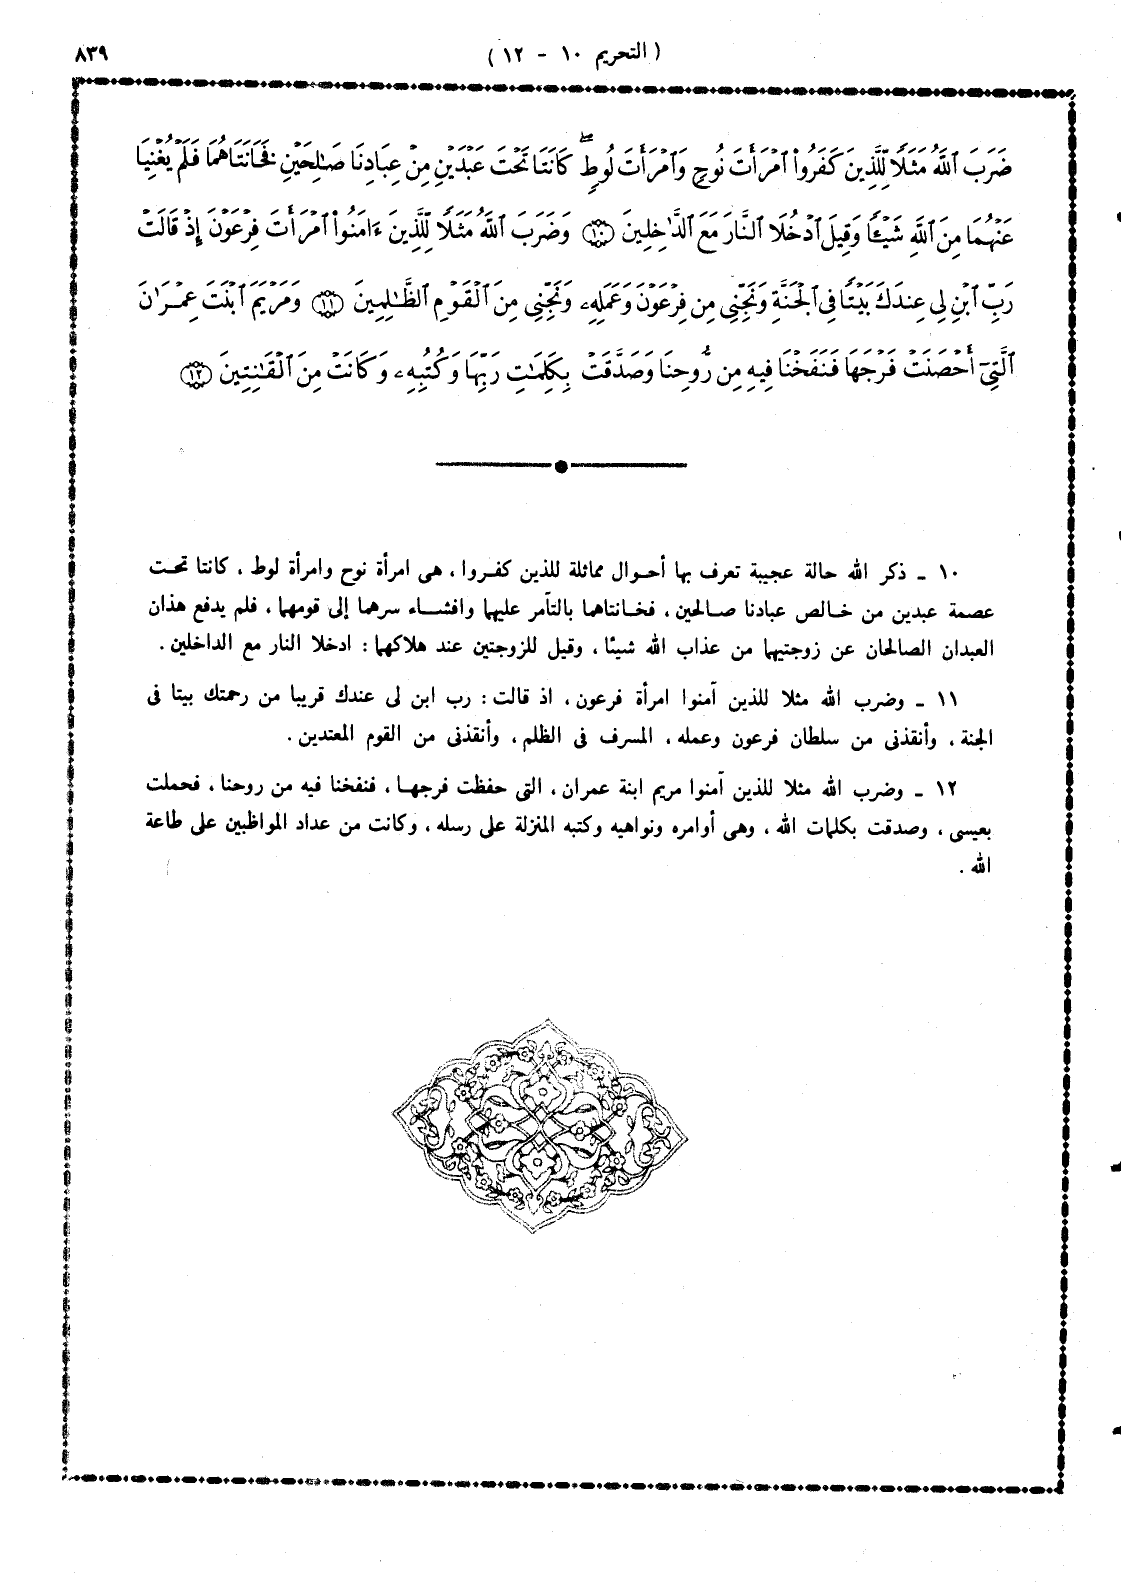 ( التحريم ١٠ - ١٢ )
٨٣٩
ضَرَبَ ٱللَّهُ مَثَلًا لِّلَّذِينَ كَفَرُوا۟ ٱمْرَأَتَ نُوحٍ وَٱمْرَأَتَ لُوطٍ ۖ كَانَتَا تَحْتَ عَبْدَيْنِ مِنْ عِبَادِنَا صَٰلِحَيْنِ فَخَانَتَاهُمَا فَلَمْ يُغْنِيَا
عَنْهُمَا مِنَ ٱللَّهِ شَيْـًٔا وَقِيلَ ٱدْخُلَا ٱلنَّارَ مَعَ ٱلدَّٰخِلِينَ ۝١٠ وَضَرَبَ ٱللَّهُ مَثَلًا لِّلَّذِينَ ءَامَنُوا۟ ٱمْرَأَتَ فِرْعَوْنَ إِذْ قَالَتْ
رَبِّ ٱبْنِ لِى عِندَكَ بَيْتًا فِى ٱلْجَنَّةِ وَنَجِّنِى مِن فِرْعَوْنَ وَعَمَلِهِۦ وَنَجِّنِى مِنَ ٱلْقَوْمِ ٱلظَّٰلِمِينَ ۝١١ وَمَرْيَمَ ٱبْنَتَ عِمْرَٰنَ
ٱلَّتِىٓ أَحْصَنَتْ فَرْجَهَا فَنَفَخْنَا فِيهِ مِن رُّوحِنَا وَصَدَّقَتْ بِكَلِمَٰتِ رَبِّهَا وَكُتُبِهِۦ وَكَانَتْ مِنَ ٱلْقَٰنِتِينَ ۝١٢
١٠ ـ ذكر الله حالة عجيبة تعرف بها أحوال مماثلة للذين كفروا ، هى امرأة نوح وامرأة لوط ، كانتا تحت
عصمة عبدين من خالص عبادنا صالحين ، فخانتاهما بالتآمر عليهما وافشاء سرهما إلى قومهما ، فلم يدفع هذان
العبدان الصالحان عن زوجتيهما من عذاب الله شيئا ، وقيل للزوجتين عند هلاكهما : ادخلا النار مع الداخلين .
١١ ـ وضرب الله مثلا للذين آمنوا امرأة فرعون ، اذ قالت : رب ابن لى عندك قريبا من رحمتك بيتا فى
الجنة ، وأنقذنى من سلطان فرعون وعمله ، المسرف فى الظلم ، وأنقذنى من القوم المعتدين .
١٢ ـ وضرب الله مثلا للذين آمنوا مريم ابنة عمران ، التى حفظت فرجها ، فنفخنا فيه من روحنا ، فحملت
بعيسى ، وصدقت بكلمات الله ، وهى أوامره ونواهيه وكتبه المنزلة على رسله ، وكانت من عداد المواظبين على طاعة
الله .